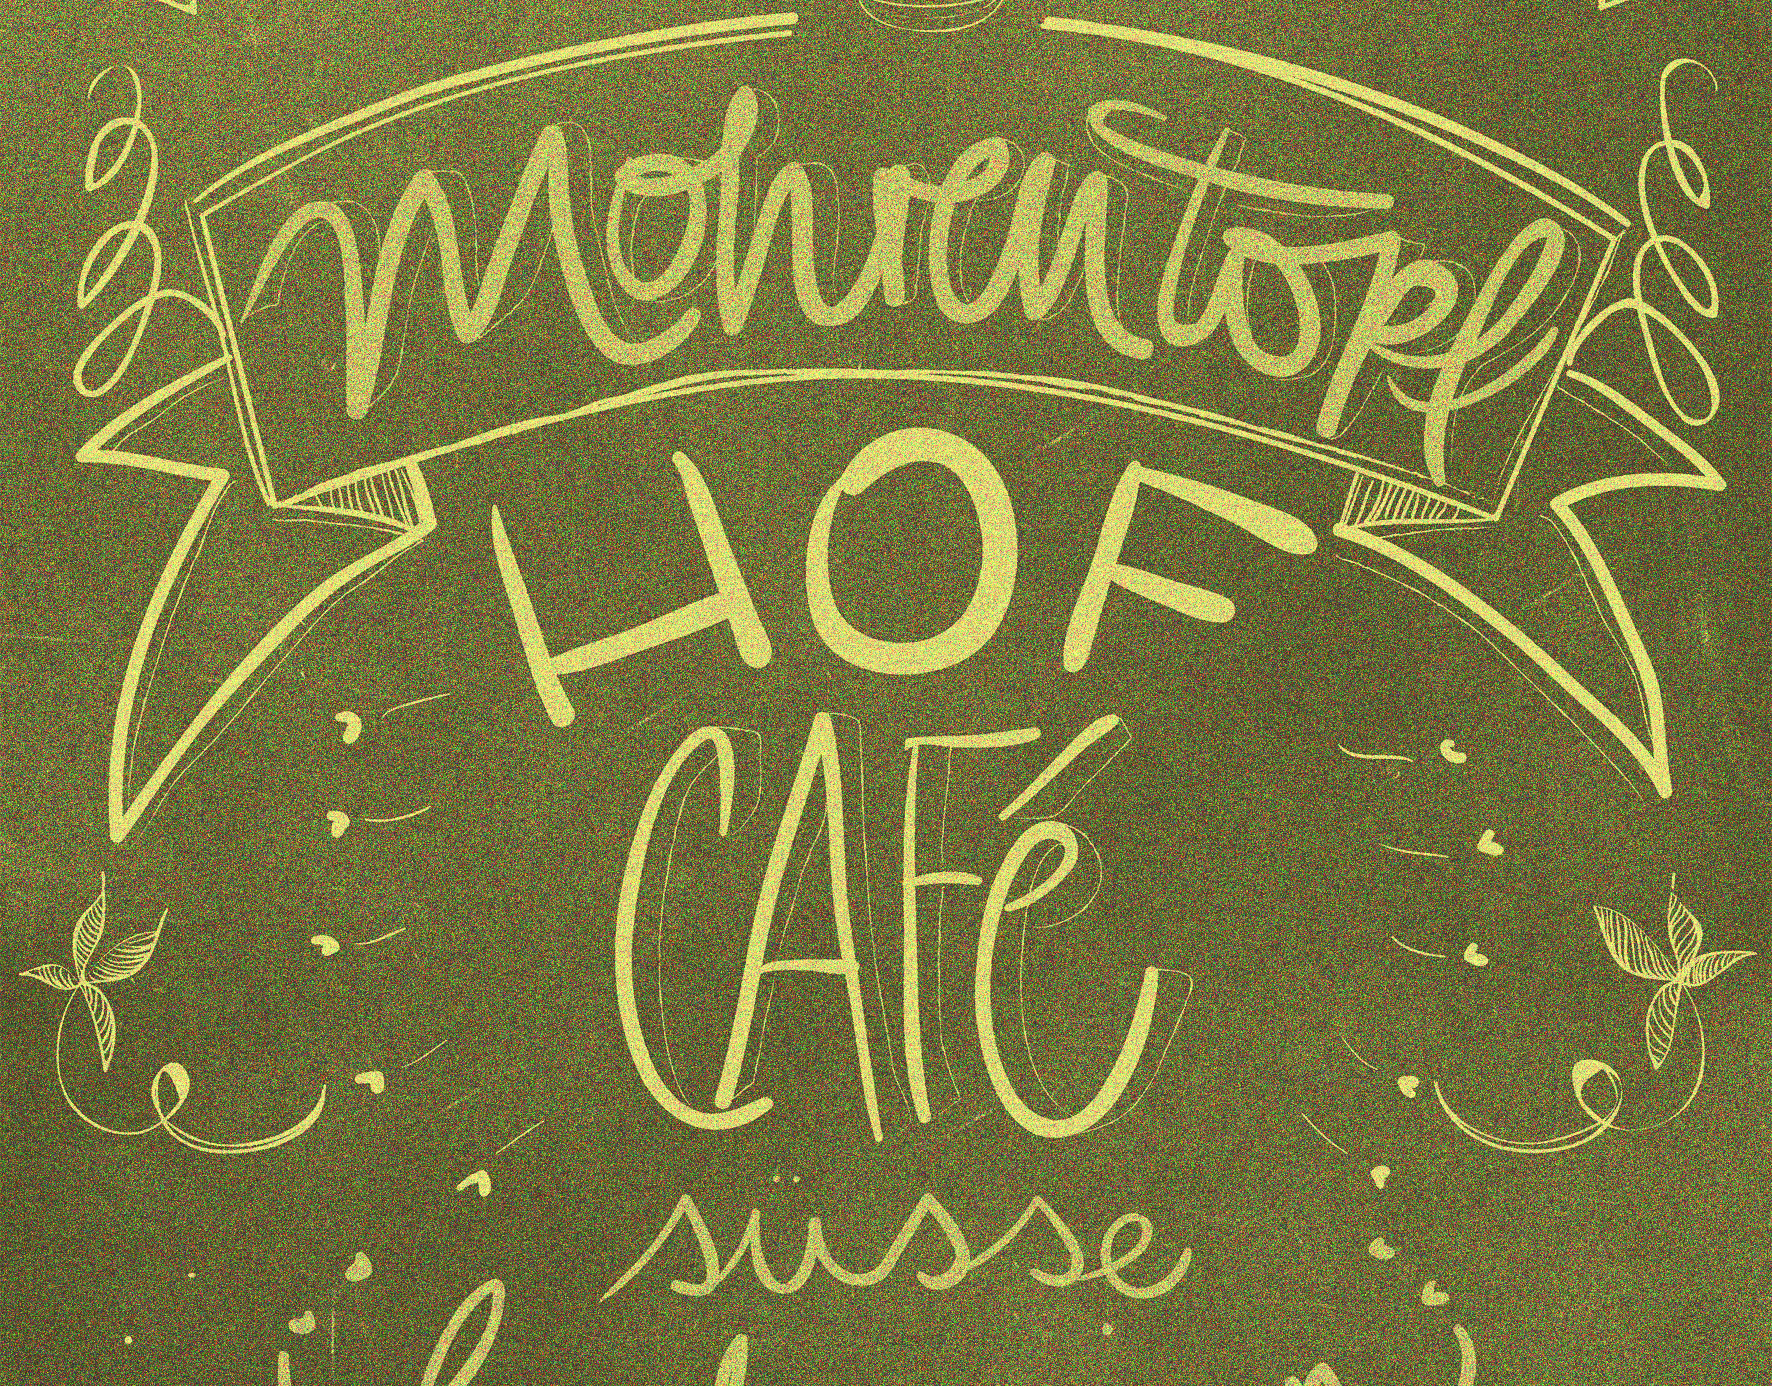 Mohrentopf
HOF
CAFé
süsse